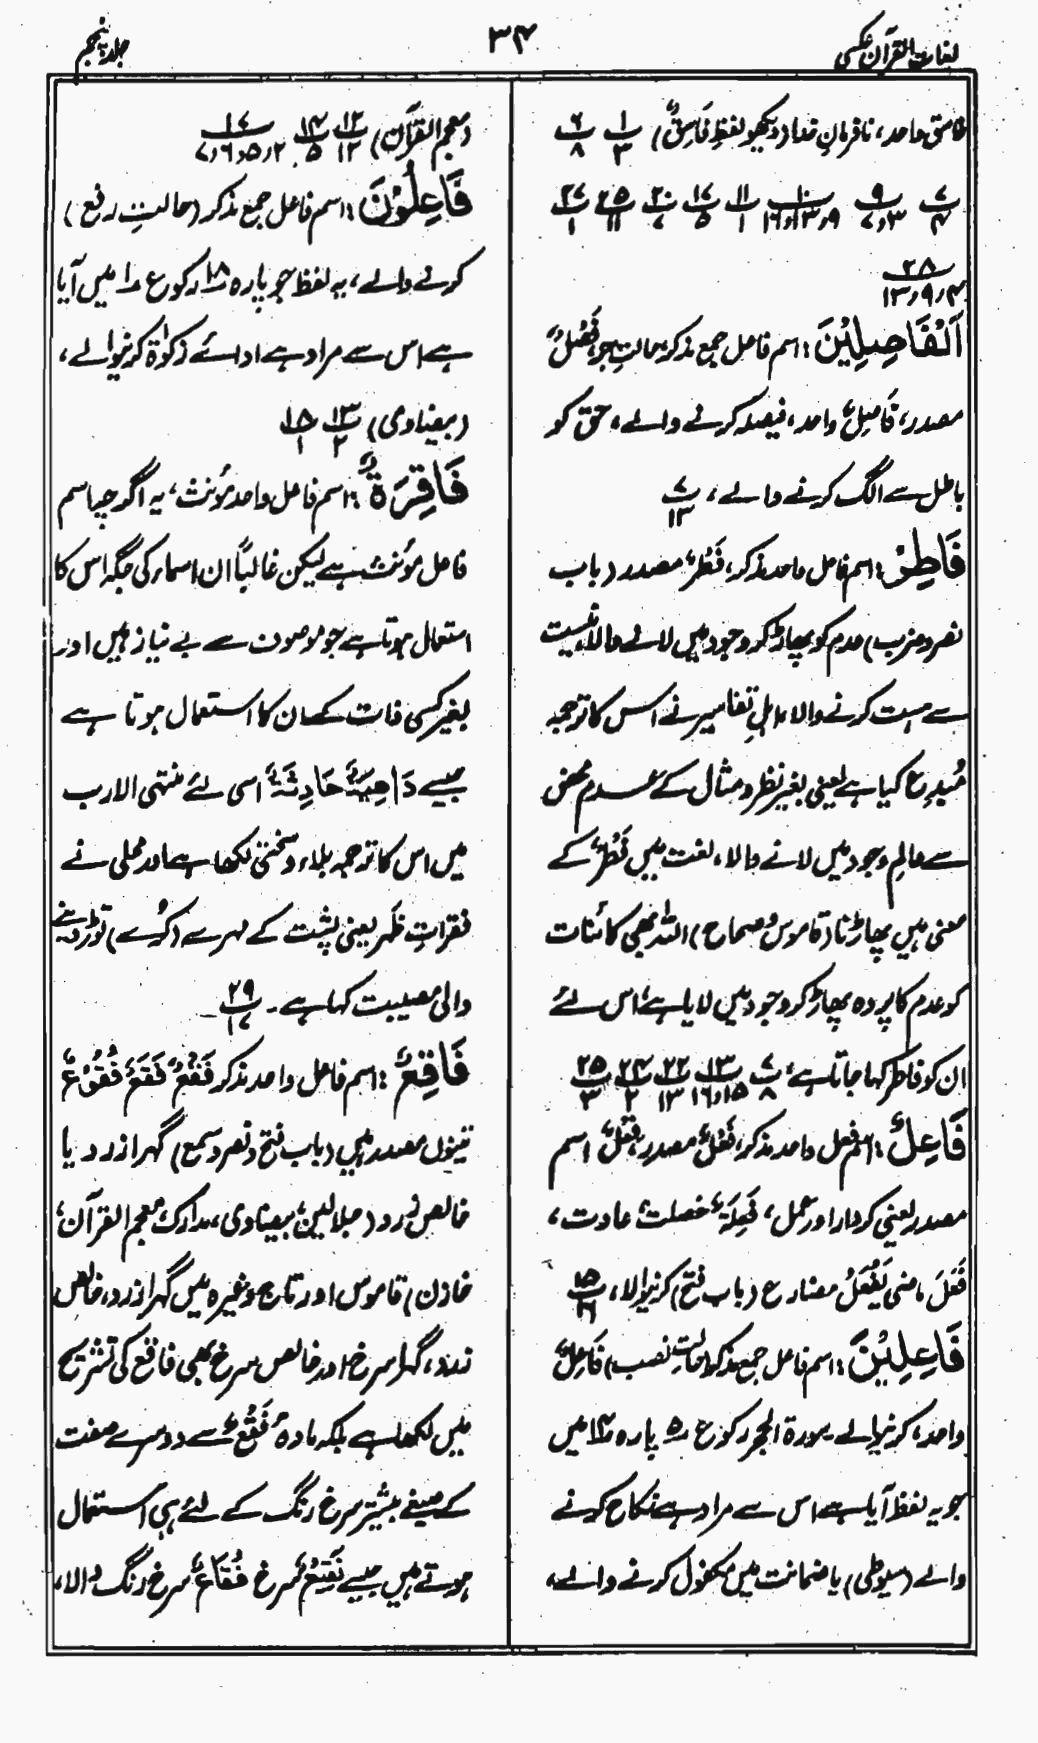 لغات القرآن عکسی
۳۴
جلد پنجم
فاسق واحد، نافرمان خدا (دیکھو لفظ فَاسِقٌ) ۱/۳ ۶/۸
۷/۴ ۹/۳،۷ ۱۰/۹،۱۳،۱۶ ۱۱/۱ ۱۷/۵ ۲۰/۷ ۲۵/۱۱ ۲۷/۱
۲۸/۴،۹،۱۳
اَلْفَاصِلِیْنَ: اسم فاعل جمع مذکر، حالتِ جر، فَصْلٌ
مصدر، فَاصِلٌ واحد، فیصلہ کرنے والے، حق کو
باطل سے الگ کرنے والے، ۷/۱۳
فَاطِرْ: اسم فاعل واحد مذکر، فَطْرٌ مصدر (باب
نصر وضرب) عدم کو پھاڑ کر وجود میں لانے والا، نیست
سے ہست کرنے والا، اہلِ تفاسیر نے اس کا ترجمہ
مُبدِع کیا ہے یعنی بغیر نظر و مثال کے عدم محض
سے عالمِ وجود میں لانے والا، لغت میں فَطْرٌ کے
معنی ہیں پھاڑنا (قاموس و صحاح) اللہ بھی کائنات
کو عدم کا پردہ پھاڑ کر وجود میں لایا ہے، اس لئے
ان کو فاطر کہا جاتا ہے، ۷/۸ ۱۳/۱۵،۱۶ ۲۲/۱۳ ۲۴/۲ ۲۵/۳
فَاعِلٌ: اسم فعل واحد مذکر، فَعْلٌ مصدر، فِعْلٌ اسم
مصدر یعنی کردار اور عمل، فَعِلَۃٌ خصلت، عادت،
فَعَلَ ماضی یَفْعَلُ مضارع (باب فتح) کرنیوالا، ۱۵/۱۶
فَاعِلِیْنَ: اسم فاعل جمع مذکر (حالتِ نصب) فَاعِلٌ
واحد، کرنیوالے۔ سورۃ الحجر رکوع ۵ پارہ ۱۴ میں
جو یہ لفظ آیا ہے اس سے مراد ہے نکاح کرنے
والے (سیوطی) یا ضمانت میں مکفول کرنے والے،
(معجم القرآن) ۱۲/۱۲ ۱۴/۵ ۱۷/۲،۵،۶،۷
فَاعِلُوْنَ: اسم فاعل جمع مذکر (حالتِ رفع)
کرنے والے، یہ لفظ جو پارہ ۱۸ رکوع ۱ میں آیا
ہے اس سے مراد ہے ادائے زکوٰۃ کرنیوالے،
(بیضاوی) ۱۳/۲ ۱۸/۱
فَاقِرَۃٌ: اسم فاعل واحد مؤنث، یہ اگرچہ اسم
فاعل مؤنث ہے لیکن غالباً ان اسماء کی جگہ اس کا
استعمال ہوتا ہے جو موصوف سے بے نیاز ہیں اور
بغیر کسی ذات کے ان کا استعمال ہوتا ہے
جیسے دَاھِیَۃٌ حَادِثَۃٌ اسی لئے منتہی الارب
میں اس کا ترجمہ بلاء و سختی لکھا ہے اور محلی نے
فقراتِ ظَہر یعنی پشت کے مہرے (گُریے) توڑ دینے
والی مصیبت کہا ہے۔ ۲۹/۱۷
فَاقِعٌ: اسم فاعل واحد مذکر فَقْعٌ فَقَعٌ فُقُوْعٌ
تینوں مصدر ہیں (باب فتح و نصر و سمع) گہرا زرد یا
خالص زرد (جلالین، بیضاوی، مدارک، معجم القرآن،
خازن) قاموس اور تاج وغیرہ میں گہرا زرد، خالص
زرد، گہرا سرخ اور خالص سرخ بھی فاقع کی تشریح
میں لکھا ہے بلکہ مادہ فَقْعٌ سے دوسرے صفت
کے صیغے بیشتر سرخ رنگ کے لئے ہی استعمال
ہوتے ہیں جیسے فَقِیْعٌ سرخ فُقَاعٌ سرخ رنگ والا،